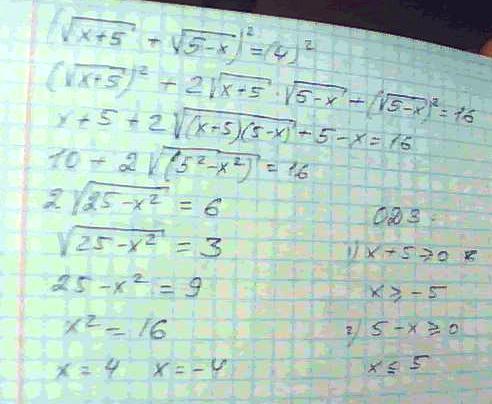 (√(x+5) + √(5-x))² = (4)²
(√(x+5))² + 2√(x+5) · √(5-x) + (√(5-x))² = 16
x + 5 + 2√((x+5)(5-x)) + 5 - x = 16
10 + 2√(5² - x²) = 16
2√(25 - x²) = 6
√(25 - x²) = 3
25 - x² = 9
x² = 16
x = 4 x = -4
ОДЗ:
1) x + 5 ≥ 0
x ≥ -5
2) 5 - x ≥ 0
x ≤ 5